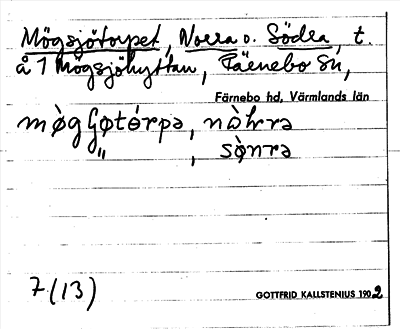 Mögsjötorpet, Norra o. Södra, t.
å 1 Mögsjöhyttan, Färnebo sn,
Färnebo hd, Värmlands län
mø̀gʃøtórpə, nòrra
" , sø̀nra
7(13)
GOTTFRID KALLSTENIUS 1902